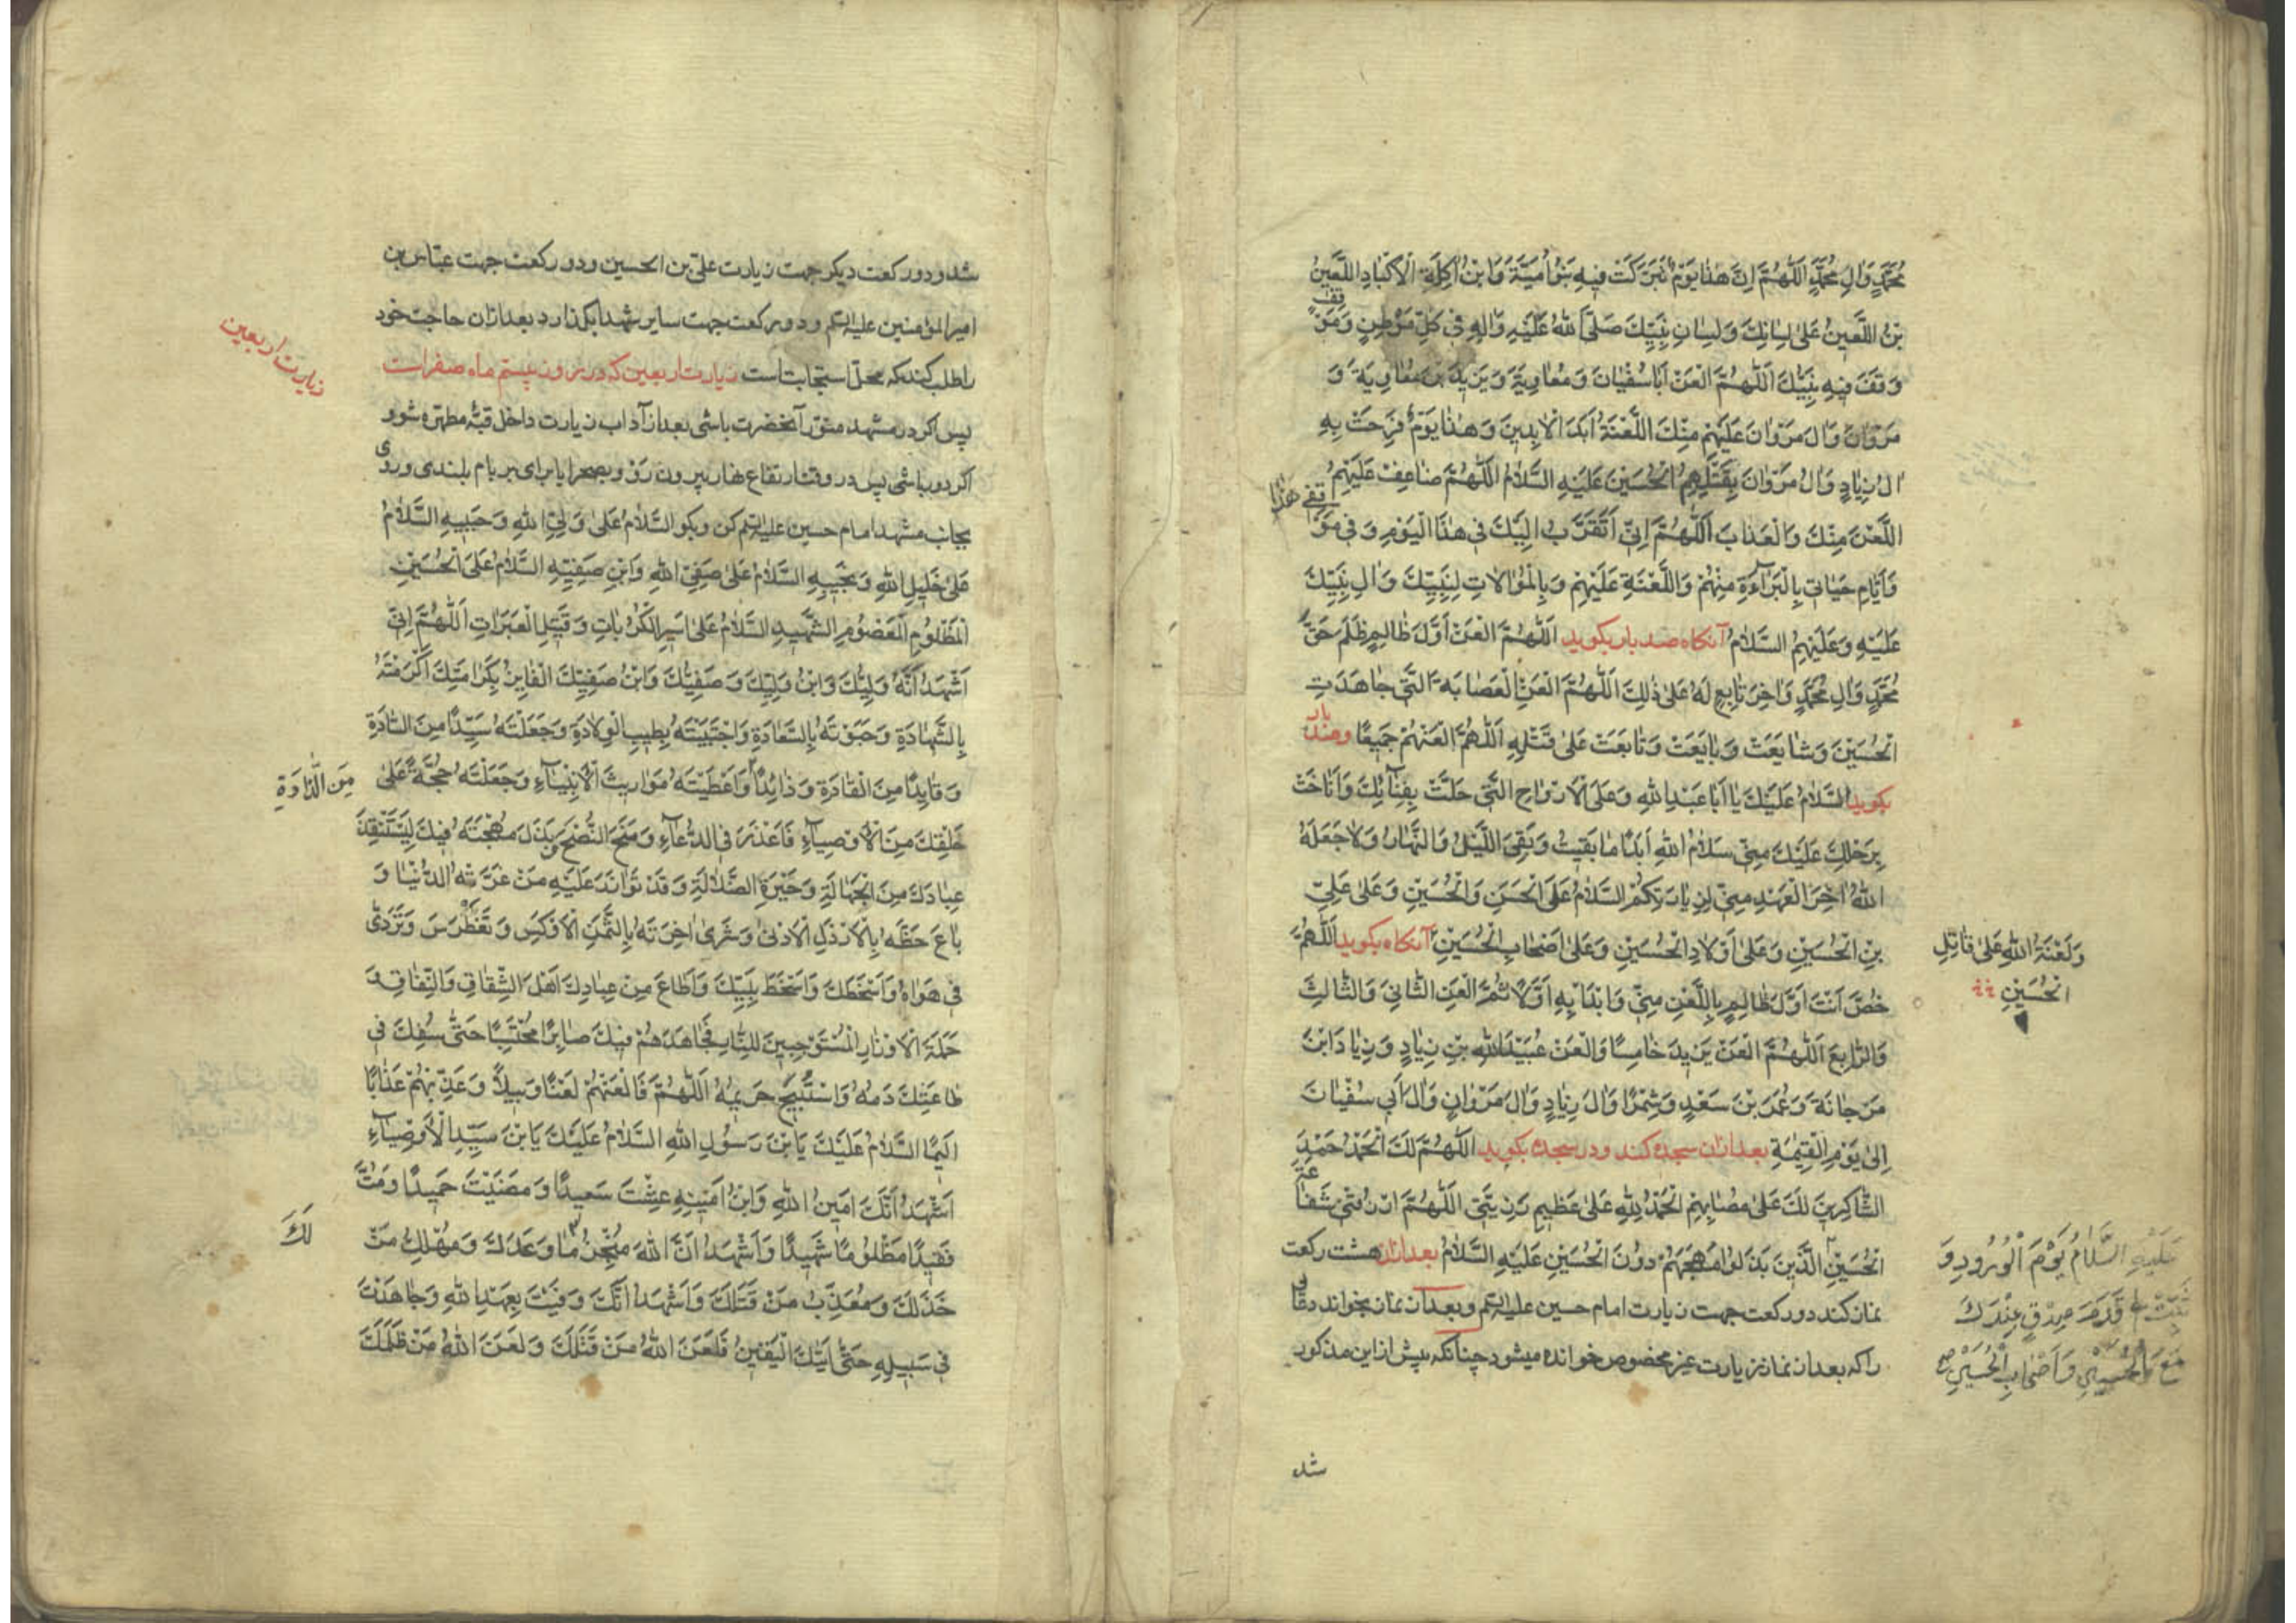 مُحَمَّدٍ وَالِ مُحَمَّدٍ اَللّٰهُمَّ اِنَّ هٰذٰا يَوْمٌ تَبَرَّكَتْ فِيهِ بَنُوا اُمَيَّةَ وَابْنُ اٰكِلَةِ الْاَكْبٰادِ اللَّعِينُ
بْنُ اللَّعِينُ عَلىٰ لِسٰانِكَ وَلِسٰانِ نَبِيِّكَ صَلَّى اللهُ عَلَيْهِ وَاٰلِهِ فِي كُلِّ مَوْطِنٍ وَمَوْقِفٍ
وَقَفَ فِيهِ نَبِيُّكَ اَللّٰهُمَّ الْعَنْ اَبَا سُفْيٰانَ وَمُعٰاوِيَةَ وَيَزِيدَ بْنَ مُعٰاوِيَةَ وَ
مَرْوٰانَ وَالَ مَرْوٰانَ عَلَيْهِمْ مِنْكَ اللَّعْنَةُ اَبَدَ الْاٰبِدِينَ وَهٰذٰا يَوْمٌ فَرِحَتْ بِهِ
اٰلُ زِيٰادٍ وَاٰلُ مَرْوٰانَ بِقَتْلِهِمُ الْحُسَيْنَ عَلَيْهِ السَّلٰامُ اَللّٰهُمَّ ضٰاعِفْ عَلَيْهِمُ
اللَّعْنَ مِنْكَ وَالْعَذٰابَ اَللّٰهُمَّ اِنِّي اَتَقَرَّبُ اِلَيْكَ فِي هٰذَا الْيَوْمِ وَفِي مَوْقِفِي هٰذٰا
وَاَيّٰامِ حَيٰاتِي بِالْبَرٰاءَةِ مِنْهُمْ وَاللَّعْنَةِ عَلَيْهِمْ وَبِالْمُوٰالاٰتِ لِنَبِيِّكَ وَاٰلِ نَبِيِّكَ
عَلَيْهِ وَعَلَيْهِمُ السَّلٰامُ آنكاه صد بار بكويد اَللّٰهُمَّ الْعَنْ اَوَّلَ ظٰالِمٍ ظَلَمَ حَقَّ
مُحَمَّدٍ وَاٰلِ مُحَمَّدٍ وَاٰخِرَ تٰابِعٍ لَهُ عَلىٰ ذٰلِكَ اَللّٰهُمَّ الْعَنِ الْعِصٰابَةَ الَّتِي جٰاهَدَتِ
الْحُسَيْنَ وَشٰايَعَتْ وَبٰايَعَتْ وَتٰابَعَتْ عَلىٰ قَتْلِهِ اَللّٰهُمَّ الْعَنْهُمْ جَمِيعًا وصد بار
بكويد اَلسَّلٰامُ عَلَيْكَ يٰا اَبٰا عَبْدِ اللهِ وَعَلَى الْاَرْوٰاحِ الَّتِي حَلَّتْ بِفِنٰائِكَ وَاَنٰاخَتْ
بِرَحْلِكَ عَلَيْكَ مِنِّي سَلٰامُ اللهِ اَبَدًا مٰا بَقِيتُ وَبَقِيَ اللَّيْلُ وَالنَّهٰارُ وَلاٰ جَعَلَهُ
اللهُ اٰخِرَ الْعَهْدِ مِنِّي لِزِيٰارَتِكُمْ السَّلٰامُ عَلَى الْحَسَنِ وَالْحُسَيْنِ وَعَلىٰ عَلِيِّ
بْنِ الْحُسَيْنِ وَعَلىٰ اَوْلاٰدِ الْحُسَيْنِ وَعَلىٰ اَصْحٰابِ الْحُسَيْنِ آنكاه بكويد اَللّٰهُمَّ
وَلَعْنَةُ اللهِ عَلىٰ قٰاتِلِ
الْحُسَيْنِ
خُصَّ اَنْتَ اَوَّلَ ظٰالِمٍ بِاللَّعْنِ مِنِّي وَابْدَأْ بِهِ اَوَّلاً ثُمَّ الْعَنِ الثّٰانِيَ وَالثّٰالِثَ
وَالرّٰابِعَ اَللّٰهُمَّ الْعَنْ يَزِيدَ خٰامِسًا وَالْعَنْ عُبَيْدَ اللهِ بْنِ زِيٰادٍ وَزِيٰادَ ابْنَ
مَرْجٰانَةَ وَعُمَرَ بْنَ سَعْدٍ وَشِمْرًا وَاٰلَ زِيٰادٍ وَاٰلَ مَرْوٰانٍ وَاٰلَ اَبِي سُفْيٰانَ
اِلىٰ يَوْمِ الْقِيٰمَةِ بعد ازان سجده كند ودر سجده بكويد اَللّٰهُمَّ لَكَ الْحَمْدُ حَمْدَ
الشّٰاكِرِينَ لَكَ عَلىٰ مُصٰابِهِمْ اَلْحَمْدُ لِلّٰهِ عَلىٰ عَظِيمِ رَزِيَّتِي اَللّٰهُمَّ ارْزُقْنِي شَفٰاعَةَ
الْحُسَيْنِ الَّذِينَ بَذَلُوا مُهَجَهُمْ دُونَ الْحُسَيْنِ عَلَيْهِ السَّلٰامُ بعد ازان هشت ركعت
عَلَيْهِ السَّلاٰمُ يَوْمَ الْوُرُودِ وَ
ثَبِّتْ لِي قَدَمَ صِدْقٍ عِنْدَكَ
مَعَ الْحُسَيْنِ وَاَصْحٰابِ الْحُسَيْنِ صح
نماز كند دو ركعت جهت زيارت امام حسين عليه السلم وبعد ازان نماز بخواند دعائى
را كه بعد از نماز زيارت غير مخصوص خوانده ميشود چنانكه پيش ازاين مذكور
شد
شد ودو ركعت ديكر جهت زيارت علىّ بن الحسين ودو ركعت جهت عبّاس بن
امير المؤمنين عليه السلم ودو ركعت جهت ساير شهدا بكذارد بعد ازان حاجت خود
را طلب كند كه محلّ استجابتست زيارت اربعين كه در روز بيستم ماه صفر است
زيارت اربعين
پس اكر در مشهد منوّر آنحضرت باشى بعد از آداب زيارت داخل قبّهٔ مطهّره شو و
اكر دور باشى پس در وقت ارتفاع نهار بيرون رو وبصحرا يا براى بر بام بلندى وروى
بجانب مشهد امام حسين عليه السلم كن وبكو اَلسَّلٰامُ عَلىٰ وَلِيِّ اللهِ وَحَبِيبِهِ اَلسَّلٰامُ
عَلىٰ خَلِيلِ اللهِ وَنَجِيبِهِ اَلسَّلٰامُ عَلىٰ صَفِيِّ اللهِ وَابْنِ صَفِيِّهِ اَلسَّلٰامُ عَلَى الْحُسَيْنِ
الْمَظْلُومِ الْمَعْصُومِ الشَّهِيدِ اَلسَّلٰامُ عَلىٰ اَسِيرِ الْكُرُبٰاتِ وَقَتِيلِ الْعَبَرٰاتِ اَللّٰهُمَّ اِنِّي
اَشْهَدُ اَنَّهُ وَلِيُّكَ وَابْنُ وَلِيِّكَ وَصَفِيُّكَ وَابْنُ صَفِيِّكَ الْفٰايِزُ بِكَرٰامَتِكَ اَكْرَمْتَهُ
بِالشَّهٰادَةِ وَحَبَوْتَهُ بِالسَّعٰادَةِ وَاجْتَبَيْتَهُ بِطِيبِ الْوِلاٰدَةِ وَجَعَلْتَهُ سَيِّدًا مِنَ السّٰادَةِ
وَقٰايِدًا مِنَ الْقٰادَةِ وَذٰائِدًا وَاَعْطَيْتَهُ مَوٰارِيثَ الْاَنْبِيٰاءِ وَجَعَلْتَهُ حُجَّةً عَلىٰ
مِنَ الذّٰادَةِ
خَلْقِكَ مِنَ الْاَوْصِيٰاءِ فَاَعْذَرَ فِي الدُّعٰاءِ وَمَنَحَ النُّصْحَ وَبَذَلَ مُهْجَتَهُ فِيكَ لِيَسْتَنْقِذَ
عِبٰادَكَ مِنَ الْجَهٰالَةِ وَحَيْرَةِ الضَّلاٰلَةِ وَقَدْ تَوٰازَرَ عَلَيْهِ مَنْ غَرَّتْهُ الدُّنْيٰا وَ
بٰاعَ حَظَّهُ بِالْاَرْذَلِ الْاَدْنىٰ وَشَرىٰ اٰخِرَتَهُ بِالثَّمَنِ الْاَوْكَسِ وَتَغَطْرَسَ وَتَرَدّٰى
فِي هَوٰاهُ وَاَسْخَطَكَ وَاَسْخَطَ نَبِيَّكَ وَاَطٰاعَ مِنْ عِبٰادِكَ اَهْلَ الشِّقٰاقِ وَالنِّفٰاقِ وَ
حَمَلَةَ الْاَوْزٰارِ الْمُسْتَوْجِبِينَ لِلنّٰارِ فَجٰاهَدَهُمْ فِيكَ صٰابِرًا مُحْتَسِبًا حَتّٰى سُفِكَ فِي
طٰاعَتِكَ دَمُهُ وَاسْتُبِيحَ حَرِيمُهُ اَللّٰهُمَّ فَالْعَنْهُمْ لَعْنًا وَبِيلاً وَعَذِّبْهُمْ عَذٰابًا
اَلِيمًا اَلسَّلٰامُ عَلَيْكَ يَابْنَ رَسُولِ اللهِ اَلسَّلٰامُ عَلَيْكَ يَابْنَ سَيِّدِ الْاَوْصِيٰاءِ
اَشْهَدُ اَنَّكَ اَمِينُ اللهِ وَابْنُ اَمِينِهِ عِشْتَ سَعِيدًا وَمَضَيْتَ حَمِيدًا وَمُتَّ
فَقِيدًا مَظْلُومًا شَهِيدًا وَاَشْهَدُ اَنَّ اللهَ مُنْجِزٌ مٰا وَعَدَكَ وَمُهْلِكٌ مَنْ
لَكَ
خَذَلَكَ وَمُعَذِّبٌ مَنْ قَتَلَكَ وَاَشْهَدُ اَنَّكَ وَفَيْتَ بِعَهْدِ اللهِ وَجٰاهَدْتَ
فِي سَبِيلِهِ حَتّٰى اَتٰيكَ الْيَقِينُ فَلَعَنَ اللهُ مَنْ قَتَلَكَ وَلَعَنَ اللهُ مَنْ ظَلَمَكَ